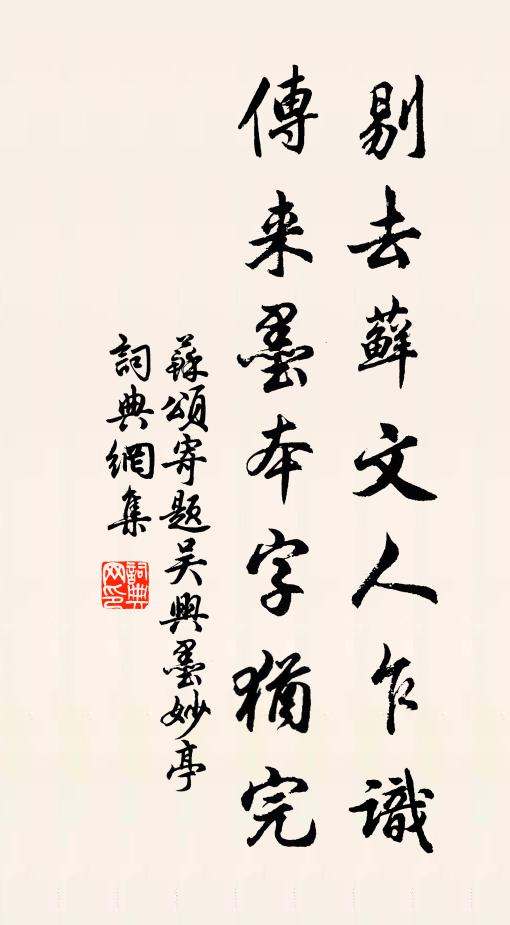 剔去蘚文人乍識
傳来墨本字猶完
蘇頌寄題吴興墨妙亭
詞典網集
詞典网印